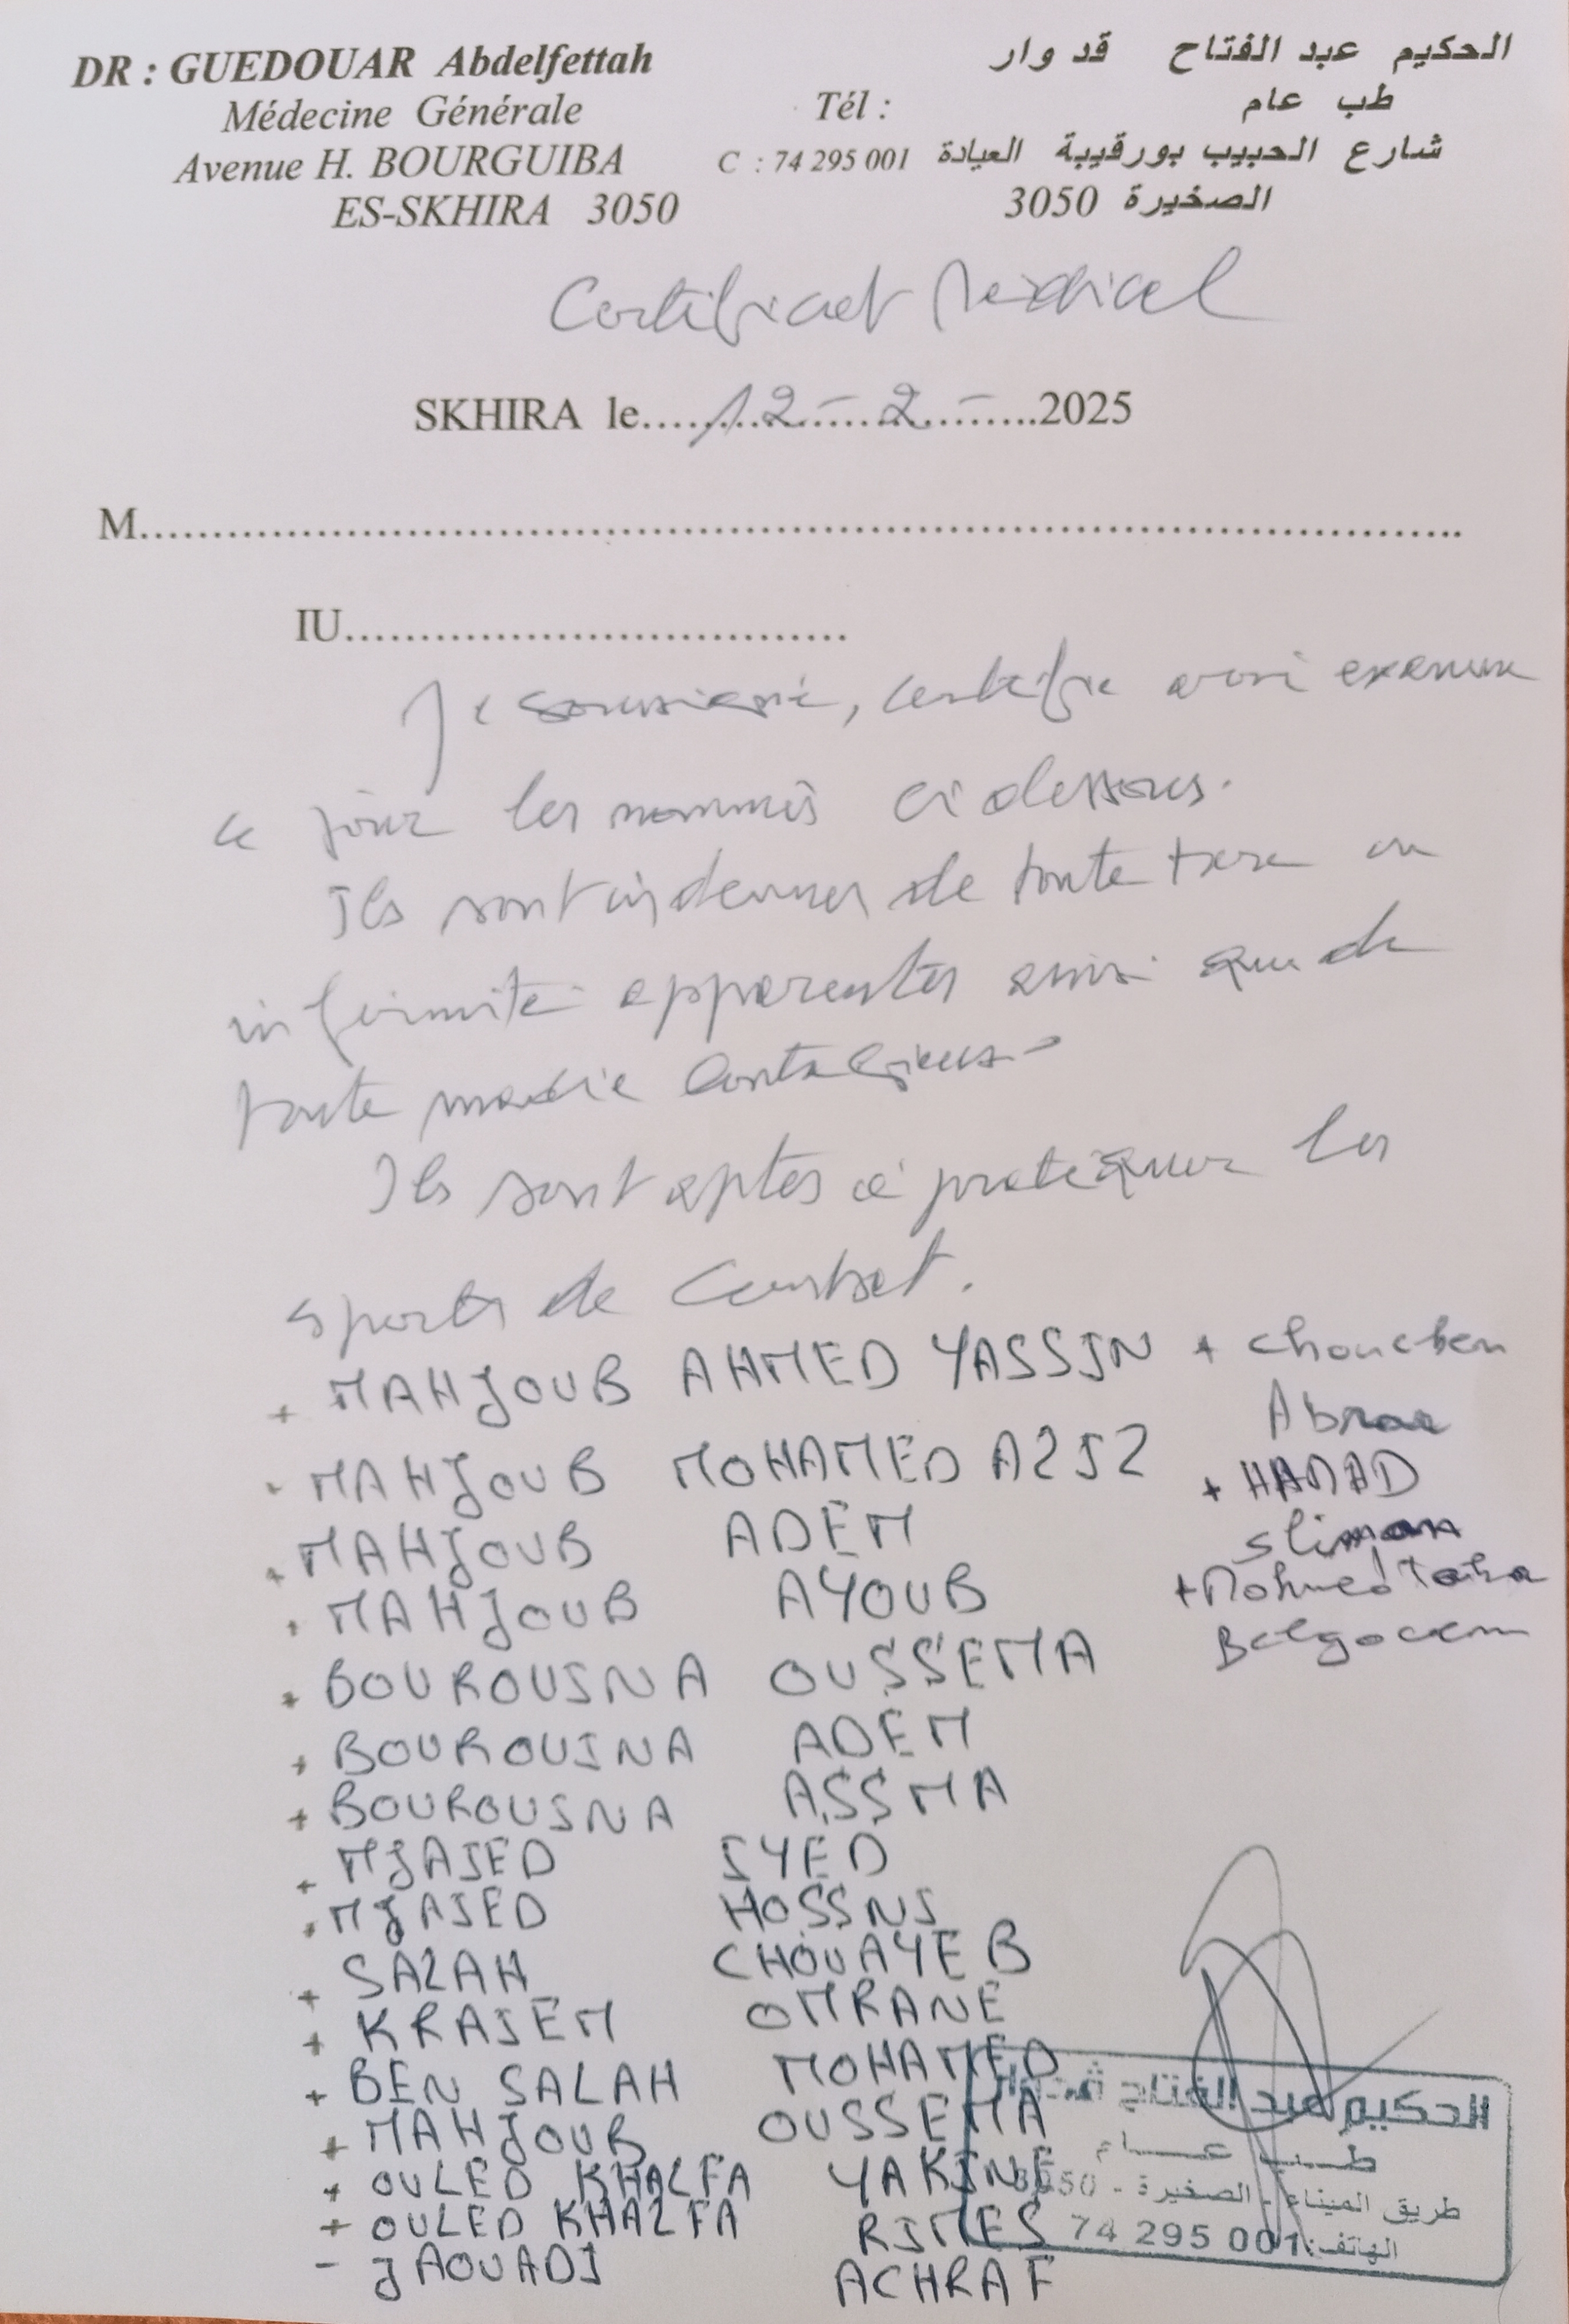 DR : GUEDOUAR Abdelfettah
Médecine Générale
Avenue H. BOURGUIBA
ES-SKHIRA 3050
الحكيم عبد الفتاح قدوار
طب عام
شارع الحبيب بورقيبة العيادة
الصخيرة 3050
Tél :
C : 74 295 001
Certificat Médical
SKHIRA le..........12 - 2 - ..........2025
M..........
IU..........
Je soussigné, certifie avoir examiné
ce jour les nommés ci dessous.
Ils sont indemnes de toute tare ou
infirmité apparentes ainsi que de
toute maladie contagieuse
Ils sont aptes à pratiquer les
sports de Combat.
+ MAHJOUB AHMED YASSIN
+ MAHJOUB MOHAMED AZIZ
+ MAHJOUB ADEM
+ MAHJOUB AYOUB
+ BOUROUINA OUSSEMA
+ BOUROUINA ADEM
+ BOUROUINA ASSMA
+ MJAIED IYED
+ MJAIED HOSSNI
+ SALAH CHOUAYEB
+ KRAIEM OMRANE
+ BEN SALAH MOHAMED
+ MAHJOUB OUSSEMA
+ OULED KHALFA YAKINE
+ OULED KHALFA RIMES
- JAOUADI ACHRAF
+ Chouchen
Abrar
+ HAMAD
Sliman
+ Mohmed Taha
Belgacem
الحكيم عبد الفتاح قدوار
طب عام
طريق الميناء - الصخيرة - 3050
الهاتف: 74 295 001